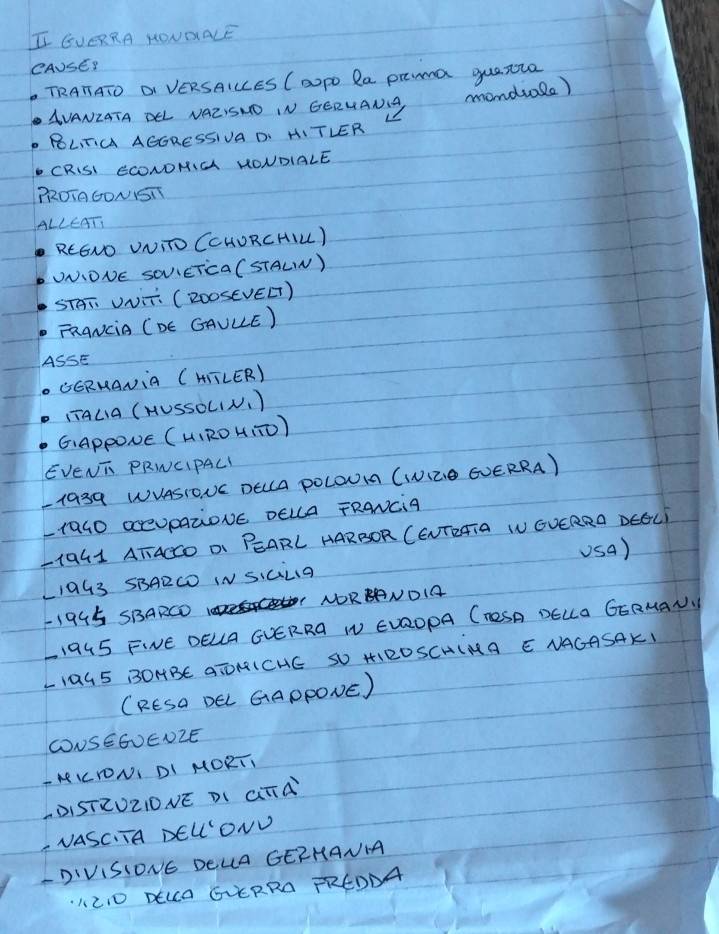 II GUERRA MONDIALE
CAUSE:
• TRATTATO DI VERSAILLES (dopo la prima guerra mondiale)
• AVANZATA DEL NAZISMO IN GERMANIA
• POLITICA AGGRESSIVA DI HITLER
• CRISI ECONOMICA MONDIALE
PROTAGONISTI
ALLEATI
• REGNO UNITO (CHURCHILL)
• UNIONE SOVIETICA (STALIN)
• STATI UNITI (ROOSEVELT)
• FRANCIA (DE GAULLE)
ASSE
• GERMANIA (HITLER)
• ITALIA (MUSSOLINI)
• GIAPPONE (HIROHITO)
EVENTI PRINCIPALI
- 1939 INVASIONE DELLA POLONIA (INIZIO GUERRA)
- 1940 OCCUPAZIONE DELLA FRANCIA
- 1941 ATTACCO DI PEARL HARBOR (ENTRATA IN GUERRA DEGLI USA)
- 1943 SBARCO IN SICILIA
- 1944 SBARCO NORMANDIA
- 1945 FINE DELLA GUERRA IN EUROPA (RESA DELLA GERMANIA
- 1945 BOMBE ATOMICHE SU HIROSCHIMA E NAGASAKI
(RESA DEL GIAPPONE)
CONSEGUENZE
- MILIONI DI MORTI
- DISTRUZIONE DI CITTÀ
- NASCITA DELL'ONU
- DIVISIONE DELLA GERMANIA
INIZIO DELLA GUERRA FREDDA